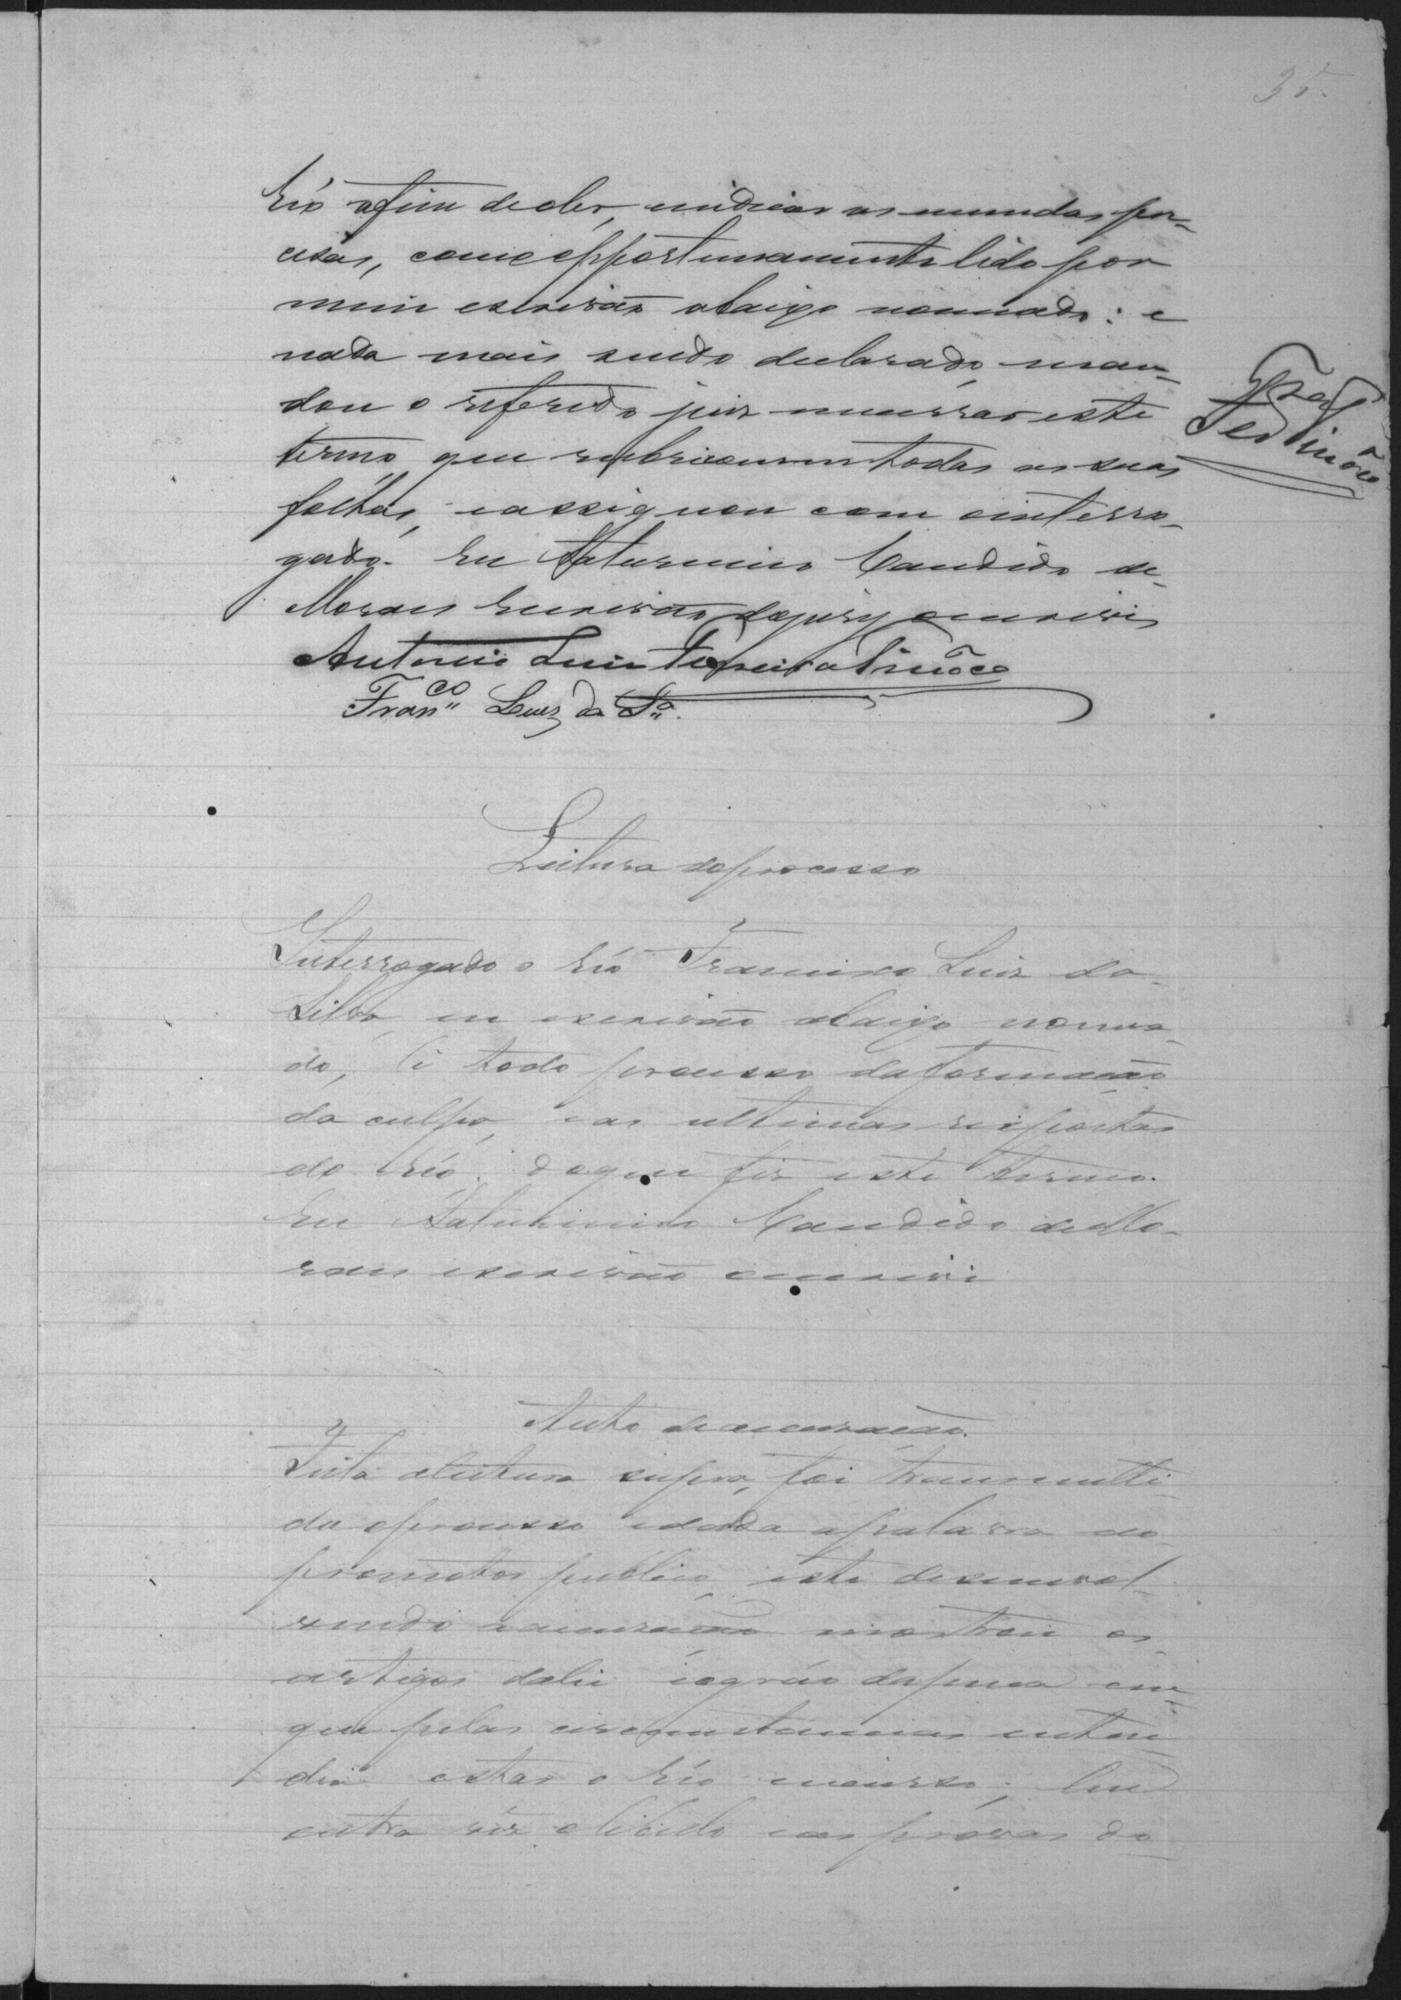 35.
Réo afim de ler, indicar as emendas pre-
cisas, como opportunamente lido por
mim escrivão abaixo nomeado: e
nada mais sendo declarado, man-
dou o referido juiz encerrar este
termo, que rubricaram todas as suas
folhas, e assignou com o interro-
gado. Eu Saturnino Candido de
Moraes Escrivão do jury o escrevi
Antonio Luis Ferreira Tinôco
Fran.co Luiz da S.a
Tinôco
Leitura do processo
Interrogado o Réo Francisco Luiz da
Silva, eu escrivão abaixo nomea-
do, li todo processo da formação
da culpa, e as ultimas respostas
do réo; do que fiz este termo.
Eu Saturnino Candido de Mo-
raes escrivão o escrevi
Auto de accusação.
Feita a leitura supra, foi transmitti-
do o processo e dada a palavra ao
promotor publico, este desenvol-
vendo a accusação mostrou os
artigos da lei e o gráo da pena em
que pelas circumstancias enten-
dia estar o Réo incurso; leu
outra vez o libello e as provas do